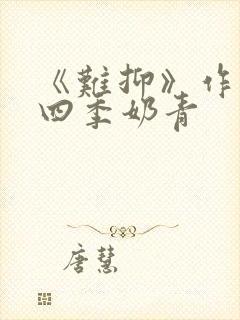 《難抑》作
四季奶青
唐慧